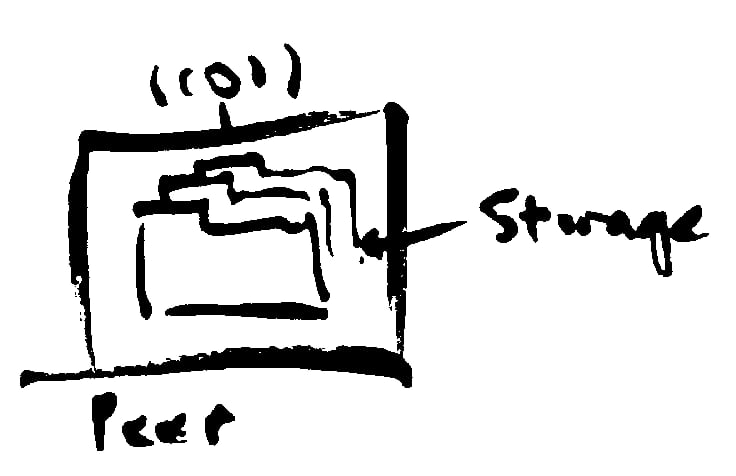 Storage
Peer